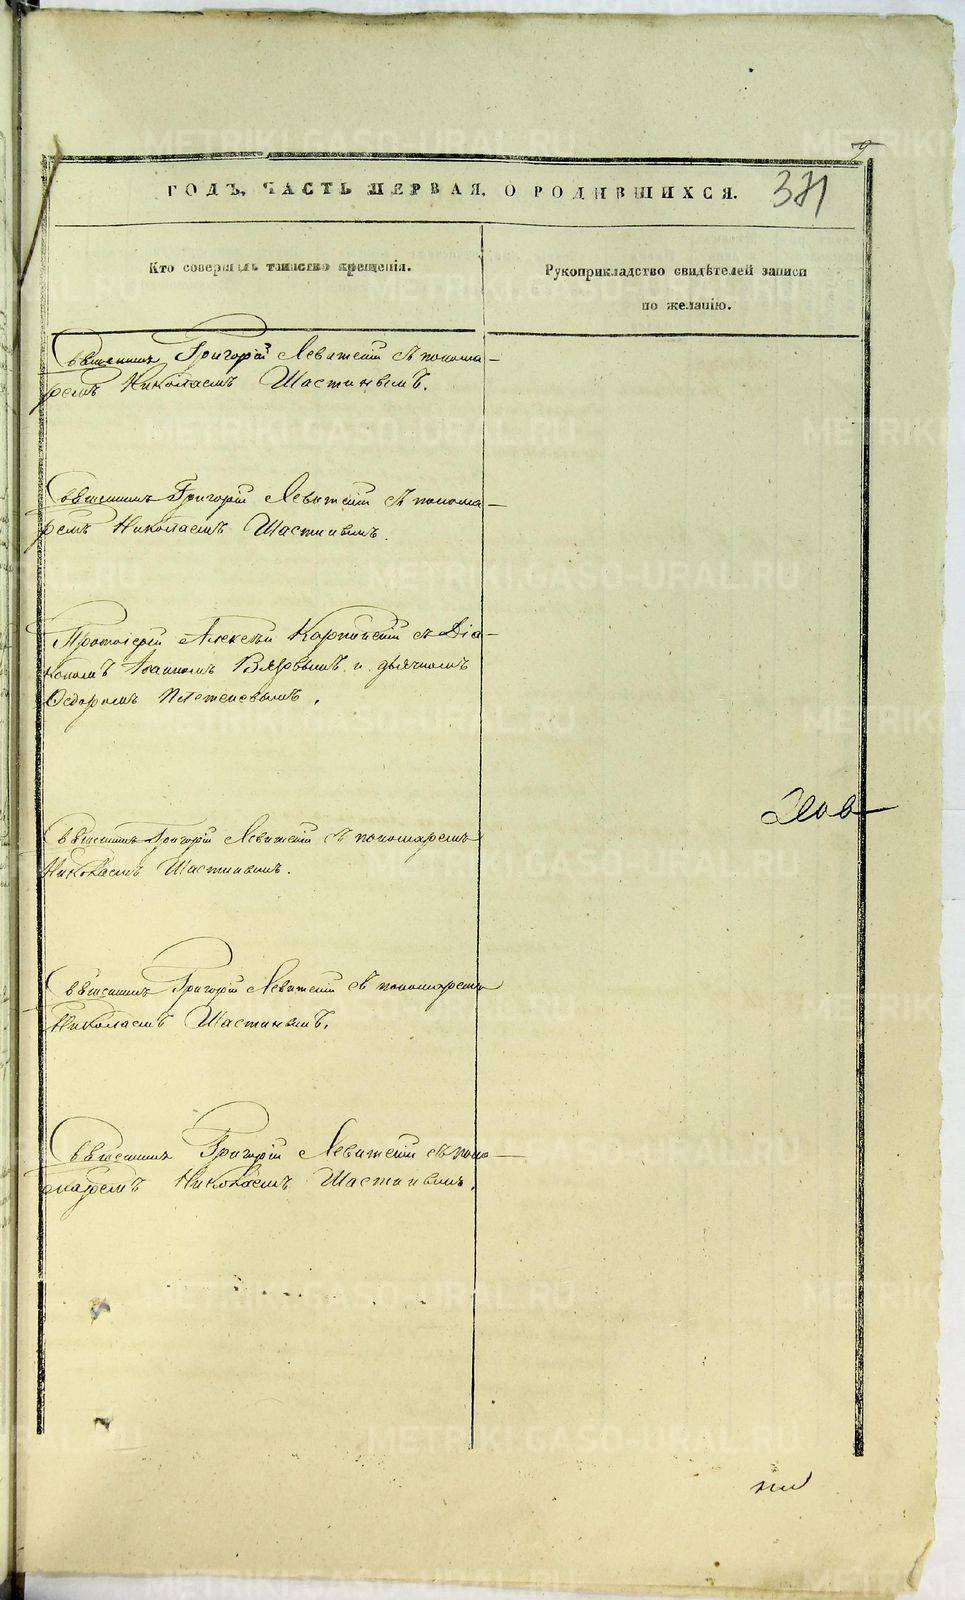 9
ГОДЪ, ЧАСТЬ ПЕРВАЯ, О РОДИВШИХСЯ.
371
Кто совершалъ таинство крещенія.
Рукоприкладство свидѣтелей записи
по желанію.
Священникъ Григорій Левитскій съ понома-
ремъ Николаемъ Шастинымъ.
Священникъ Григорій Левитскій съ понома-
ремъ Николаемъ Шастинымъ.
Протоіерей Алексѣй Карпинскій съ Діа-
кономъ Іоанномъ и дьячкомъ
Ѳедоромъ Плетеневымъ.
Священникъ Григорій Левитскій съ пономаремъ
Николаемъ Шастинымъ.
Священникъ Григорій Левитскій съ пономаремъ
Николаемъ Шастинымъ.
Священникъ Григорій Левитскій съ поно-
маремъ Николаемъ Шастинымъ.
METRIKI.GASO-URAL.RU